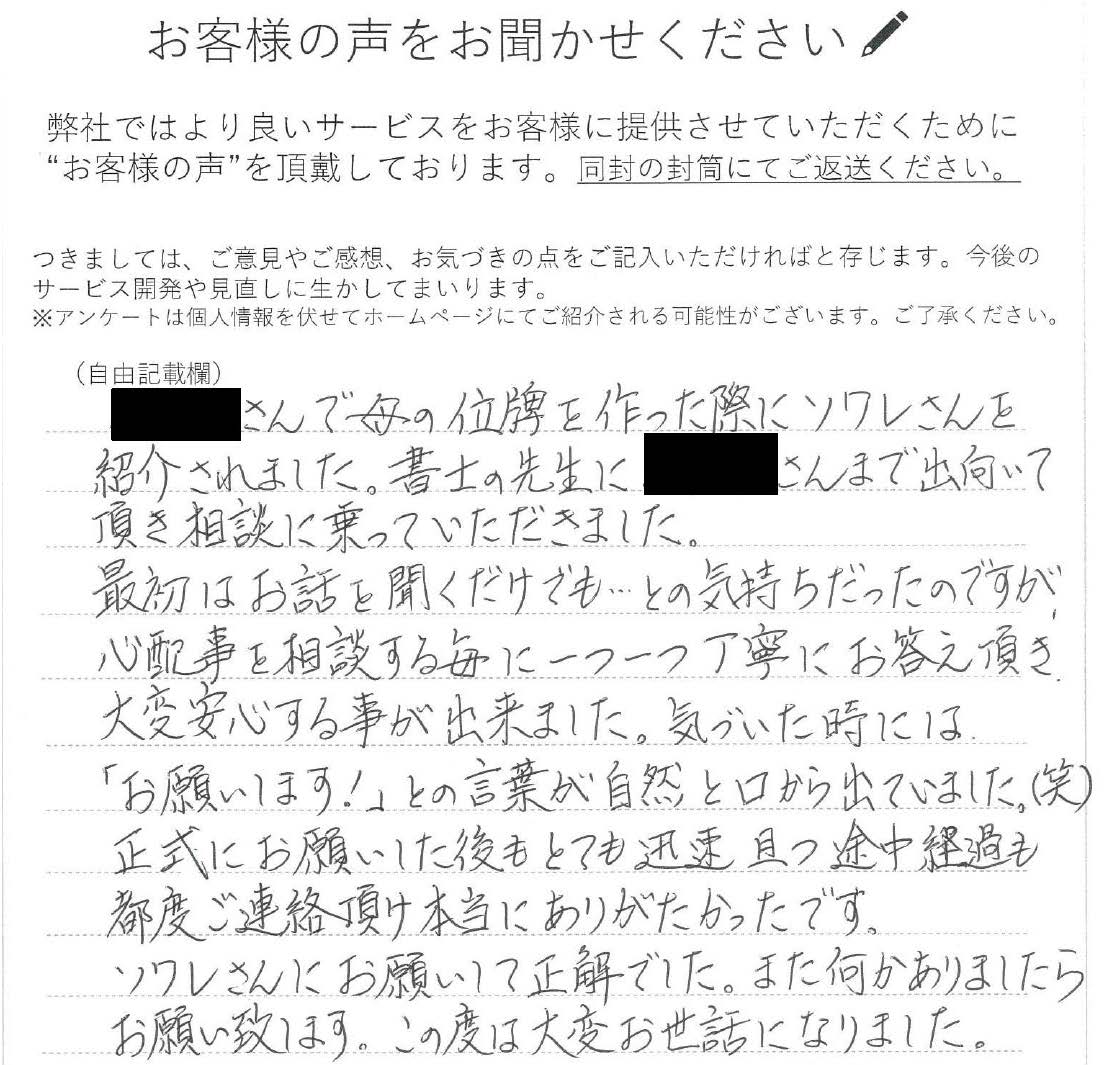 お客様の声をお聞かせください
弊社ではより良いサービスをお客様に提供させていただくために
“お客様の声”を頂戴しております。同封の封筒にてご返送ください。
つきましては、ご意見やご感想、お気づきの点をご記入いただければと存じます。今後の
サービス開発や見直しに生かしてまいります。
※アンケートは個人情報を伏せてホームページにてご紹介される可能性がございます。ご了承ください。
（自由記載欄）
さんで母の位牌を作った際にソワレさんを
紹介されました。書士の先生に さんまで出向いて
頂き相談に乗っていただきました。
最初はお話を聞くだけでも…との気持ちだったのですが、
心配事を相談する毎に一つ一つ丁寧にお答え頂き
大変安心する事が出来ました。気づいた時には
「お願いします!」との言葉が自然と口から出ていました。(笑)
正式にお願いした後もとても迅速且つ途中経過も
都度ご連絡頂け本当にありがたかったです。
ソワレさんにお願いして正解でした。また何かありましたら
お願い致します。この度は大変お世話になりました。